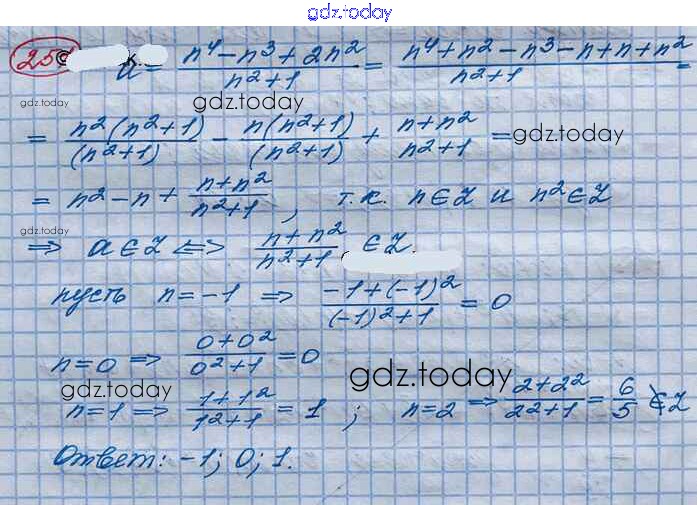 gdz.today
25 a = (n⁴ - n³ + 2n²)/(n²+1) = (n⁴ + n² - n³ - n + n + n²)/(n²+1) =
gdz.today
gdz.today
= n²(n²+1)/(n²+1) - n(n²+1)/(n²+1) + (n+n²)/(n²+1) = gdz.today
= n² - n + (n+n²)/(n²+1), т.к. n∈Z и n²∈Z
gdz.today
⇒ a∈Z ⇔ (n+n²)/(n²+1) ∈Z.
пусть n=-1 ⇒ (-1+(-1)²)/((-1)²+1) = 0
n=0 ⇒ (0+0²)/(0²+1) = 0
gdz.today gdz.today
n=1 ⇒ (1+1²)/(1²+1) = 1 ; n=2 ⇒ (2+2²)/(2²+1) = 6/5 ∉Z
Ответ: -1; 0; 1.